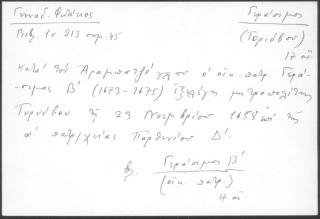 Γενναδ. Φυλάκιος
Γεράσιμος
Βιβ. 1ο 213 σημ. 45
(Τορνόβου)
17 αι.
Κατά τον Αραμπατζόγλου ο οικ. πατρ. Γερά-
σιμος Β' (1673-1675) εξελέγη μητροπολίτης
Τυρνόβου τη 23 Νοεμβρίου 1658 επί της
α' πατρ/χείας Παρθενίου Δ'.
βλ. Γεράσιμος Β'
(οικ. πατρ.)
17 αι.